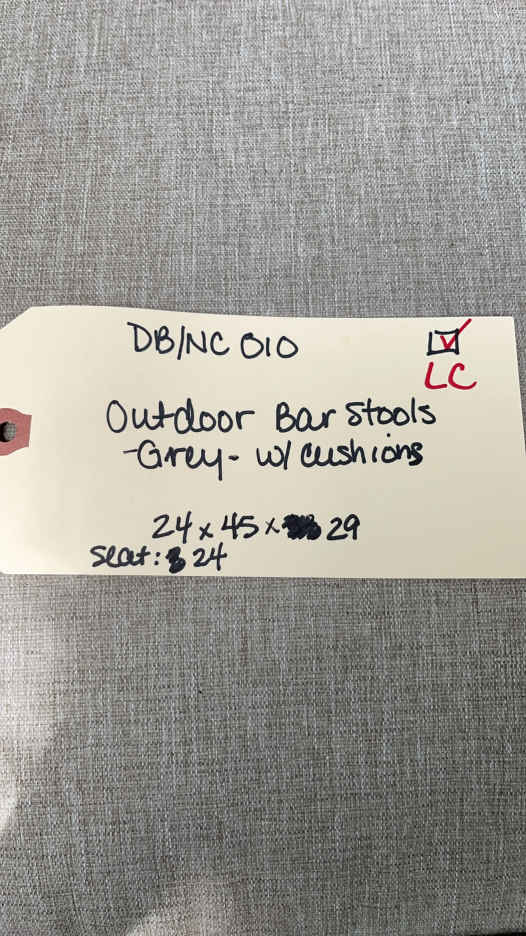 DB/NC 010
LC
Outdoor Bar Stools
-Grey- w/ cushions
24 x 45 x 29
seat: 24